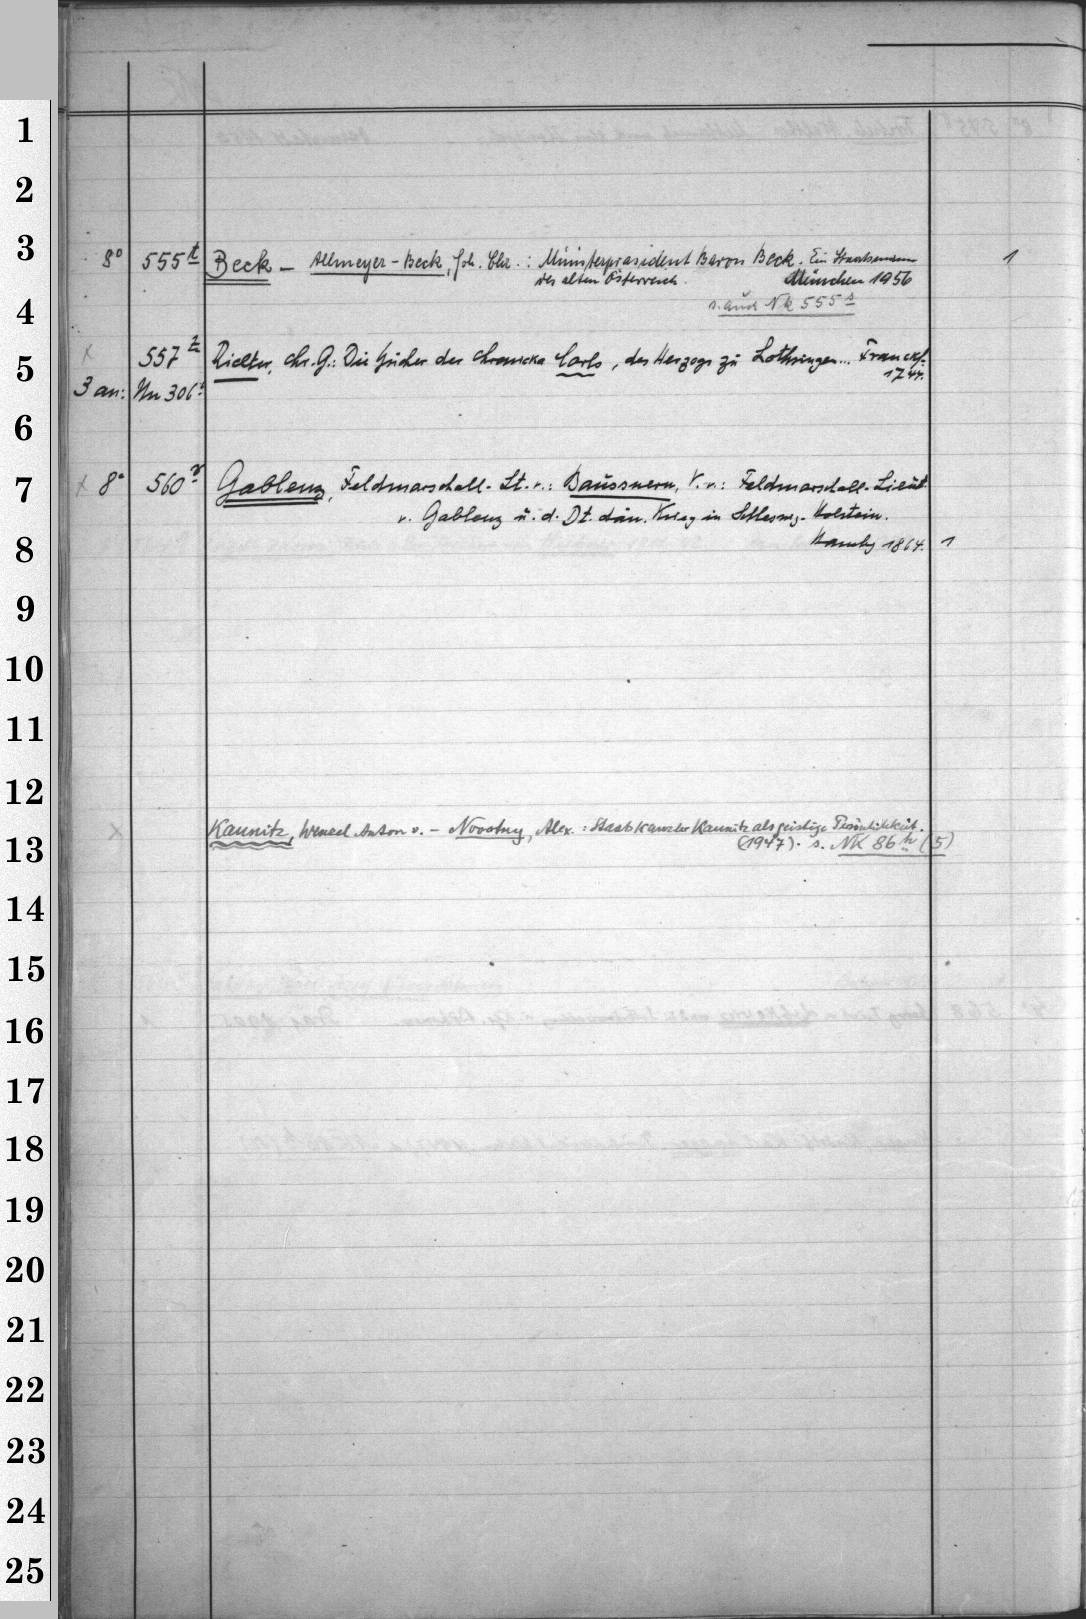 1
2
3
8° 555 t Beck – Allmeyer-Beck, Joh. Chr.: Ministerpräsident Baron Beck. Ein Staatsmann 1
des alten Österreich. München 1956
4
s. auch Nk 555 s
5
x 557 z Richter, Chr. G.: Die Bücher der Chronicka Carls, des Herzogs zu Lothringen... Franckf.
1744.
3 an: Nn 306
6
7
x 8° 560 Gablenz, Feldmarschall-Lt. v.: Baussnern, V. v.: Feldmarschall-Lieut
v. Gablenz u. d. Dt. dän. Krieg in Schleswg.-Holstein.
8
Hambg 1864. 1
9
10
11
12
x Kaunitz, Wenzel Anton v. – Novotny, Alex.: Staatskanzler Kaunitz als geistige Persönlichkeit.
13
(1947). s. NK 86 (5)
14
15
16
17
18
19
20
21
22
23
24
25